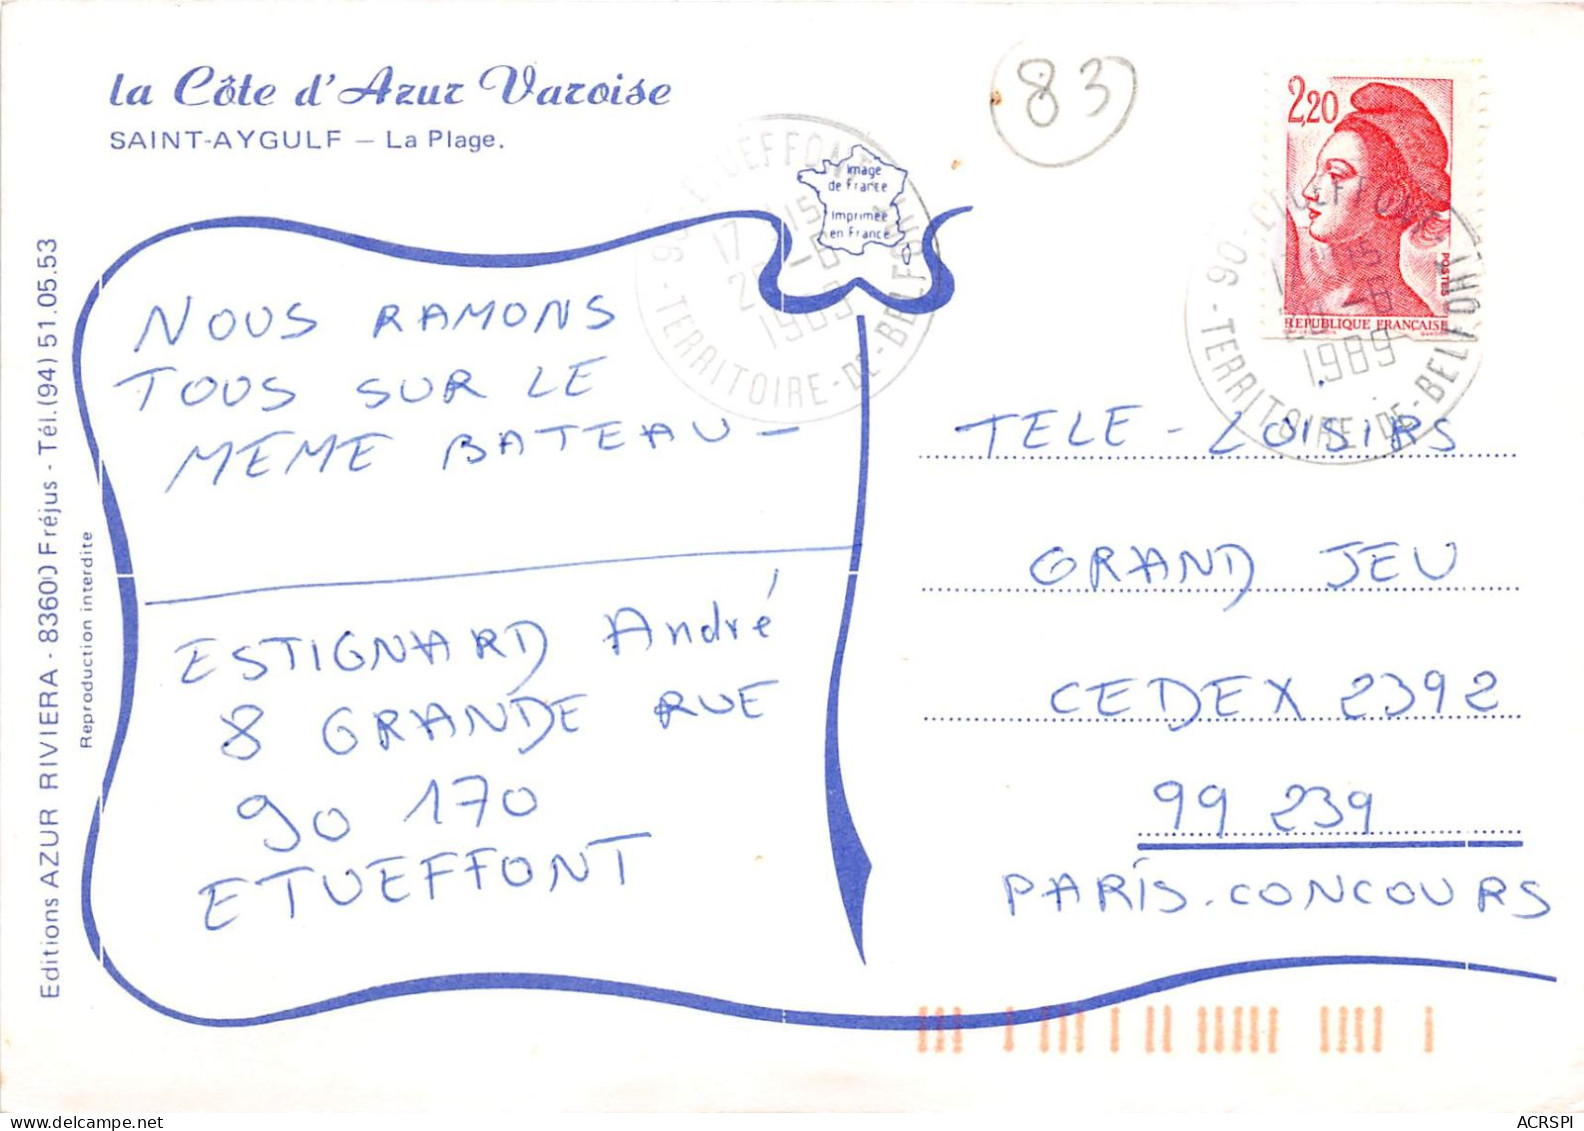 la Côte d'Azur Varoise
SAINT-AYGULF – La Plage.
83
2,20
POSTES
REPUBLIQUE FRANÇAISE
Image
de France
Imprimée
en France
90 - ETUEFFONT
17 H 15
1989
TERRITOIRE-DE-BELFORT
90 - ETUEFFONT
1989
TERRITOIRE-DE-BELFORT
NOUS RAMONS
TOUS SUR LE
MEME BATEAU –
ESTIGNARD André
8 GRANDE RUE
90 170
ETUEFFONT
TELE - LOISIRS
GRAND JEU
CEDEX 2392
99 239
PARIS. CONCOURS
Editions AZUR RIVIERA - 83600 Fréjus - Tél. (94) 51.05.53
Reproduction interdite
ACRSPI